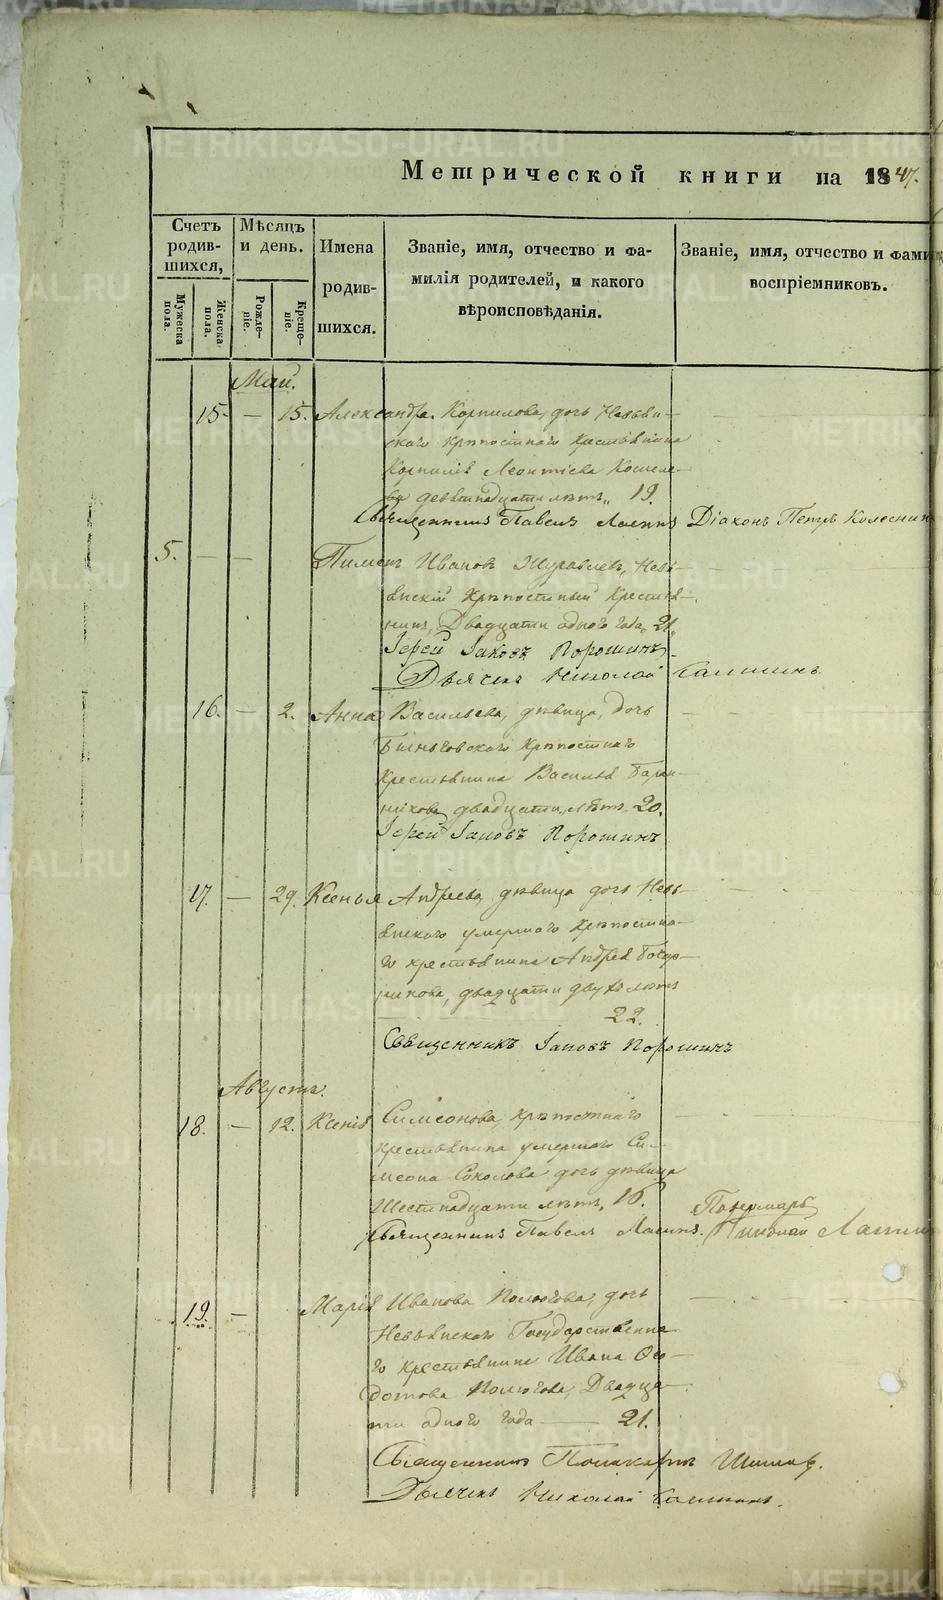 Метрической книги на 1847.
Счетъ родившихся,
Мужеска пола.
Женска пола.
Мѣсяцъ и день.
Рожденіе.
Крещеніе.
Имена родившихся.
Званіе, имя, отчество и фамилія родителей, и какого вѣроисповѣданія.
Званіе, имя, отчество и фами
воспріемниковъ.
Май.
15. — 15. Александра Корнилова, дочь Невьян-
скаго крѣпостнаго крестьянина
Корнилія Леонтіева Кошеле-
ва девятнадцати лѣтъ, 19.
Священникъ Павелъ Діаконъ Петръ Колесник
5. — — Пименъ Ивановъ Журавлевъ, Невь-
янскій крѣпостный крестья-
нинъ, двадцати одного года, 21.
Іерей Іаковъ Порошинъ
Дьячекъ Николай
16. — 2. Анна Васильева, дѣвица, дочь
крѣпостнаго
крестьянина Василья
двадцати лѣтъ 20.
Іерей Іаковъ Порошинъ
17. — 29. Ксенья Андреева, дѣвица дочь Невь-
янскаго умершаго крѣпостна-
го крестьянина Андрея
двадцати двухъ лѣтъ
22.
Священникъ Іаковъ Порошинъ
Августъ.
18. — 12. Ксенія Симеонова, крѣпостнаго
крестьянина умершаго Си-
меона Соколова дочь дѣвица
шестнадцати лѣтъ, 16.
Пономарь
Священникъ Павелъ Николай
19. — Марія Иванова дочь
Невьянскаго Государственна-
го крестьянина Ивана Ѳео-
дотова двадца-
ти одного года — 21.
Священникъ Поликарпъ
Дьячекъ Николай
METRIKI.GASO-URAL.RU